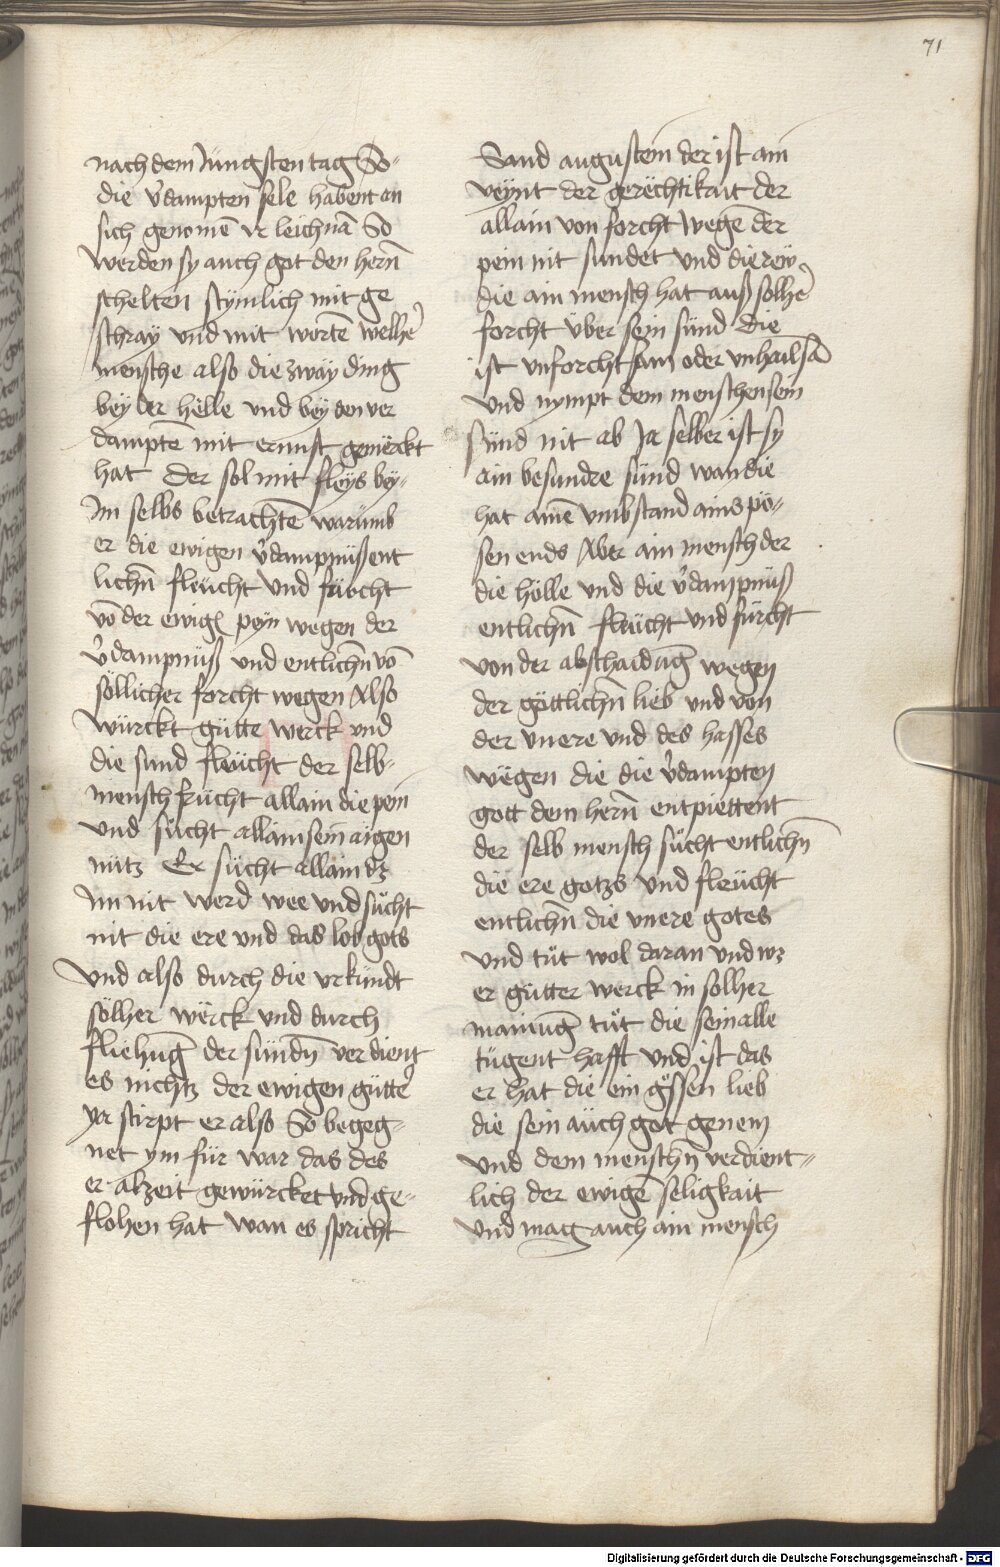 71
nach dem Jungsten tag So-
die v̓dampten sele habent an
sich genomē Ir leichnā So
werden sy auch got den hern̄
schelten stymlich mit ge
schray vnd mit wortē welhe᷑
mensche also die zway ding
bey der helle vnd bey den ver
damptē mit ernnst gemërckt
hat der sol mit fleys bey-
Im selbs betrachtē warumb
er die ewigen v̓dampnüß ent
lichn̄ fleücht vnd fürcht
vō der ewigē peyn wegen der
v̓dampnüß vnd entlichn̄ vō
söllicher forcht wegen Also
würckt gütte werck vnd
die sund fleücht der selb-
mensch fücht allain die pein
vnd sücht allain sein aigen
nütz Er sücht allain dz
Im nit werd wee vnd sücht
nit die ere vnd das lob gots
vnd also durch die vrkündt
sölher wërck vnd durch
fliehūg der sündn̄ verdient
es nichtz der ewigen gütte᷑
ya stirpt er also So begeg-
net ym für war das des
er alzeit gewürcket vnd ge-
flohen hat wan es spricht
Sand augustein der ist ain
veynt der gerëchtikait der
allain von forcht wegē der
pein nit sundet vnd die rew
die ain mensch hat auß solhe᷑
forcht über sein sünd die
ist vnforchtsam oder vnhailsā
vnd nympt dem menschen sein
sünd nit ab Ja selber ist sy
ain besundre sünd wan die
hat ainē vmbstand ains pö-
sen ends Aber ain mensch der
die hölle vnd die v̓dampnüß
entlichn̄ flücht vnd fürcht
von der abschaidūg wegen
der göttlichn̄ lieb vnd von
der vnere vnd des hasses
wëgen die die v̓dampten
gott dem hern̄ entpiettent
der selb mensch sücht entlichn̄
die ere gotzs vnd fleücht
entlichn̄ die vnere gotes
vnd tüt wol daran vnd wz
er gütter werck in solher
mainūg tüt die sein alle
tügent hafft vnd ist das
er hat die ein gössen lieb
die sein auch got genem
vnd dem menschn̄ verdient-
lich der ewigē seligkait
vnd mag auch ain mensch
Digitalisierung gefördert durch die Deutsche Forschungsgemeinschaft - DFG